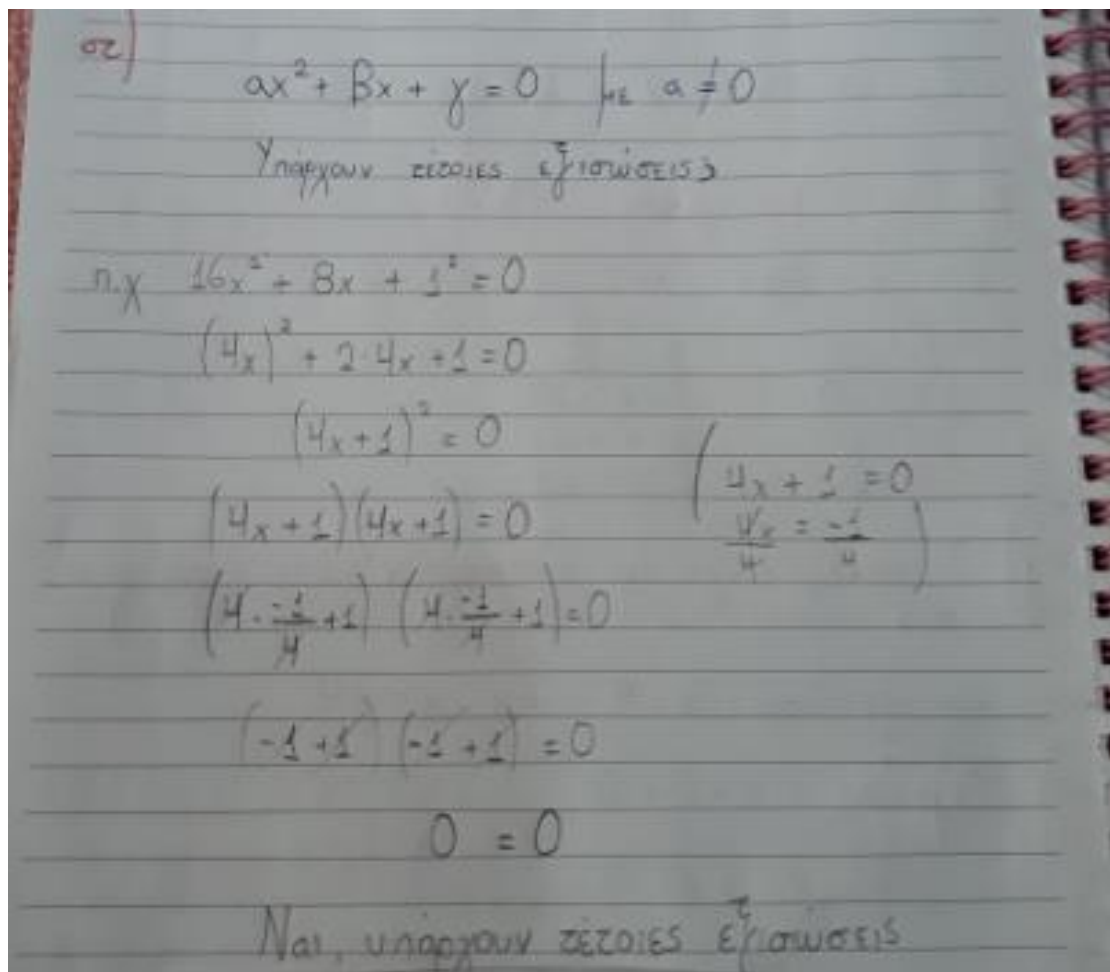 στ)
αx² + βx + γ = 0 με α ≠ 0
Υπάρχουν τέτοιες εξισώσεις;
π.χ 16x² + 8x + 1² = 0
(4x)² + 2·4x + 1 = 0
(4x + 1)² = 0
(4x + 1)(4x + 1) = 0
(4x + 1 = 0
4x/4 = -1/4)
(4·-1/4 + 1) (4·-1/4 + 1) = 0
(-1 + 1) (-1 + 1) = 0
0 = 0
Ναι, υπάρχουν τέτοιες εξισώσεις